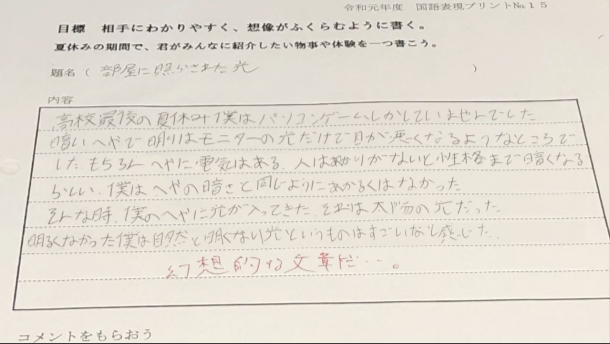 令和元年度　国語表現プリント№15
目標　相手にわかりやすく、想像がふくらむように書く。
夏休みの期間で、君がみんなに紹介したい物事や体験を一つ書こう。
題名（ 部屋に照らされた光 ）
内容
高校最後の夏休み僕はパソコンゲームしかしていませんでした
暗いへやで明りはモニターの光だけで目が悪くなるようなところで
したもちろんへやに電気はある、人は明りがないと性格まで暗くなる
らしい、僕はへやの暗さと同じようにあかるくはなかった
そんな時、僕のへやに光が入ってきた それは太陽の光だった
明るくなかった僕は自然と明るくなり光というものはすごいなと感じた
幻想的な文章だ…。
コメントをもらおう